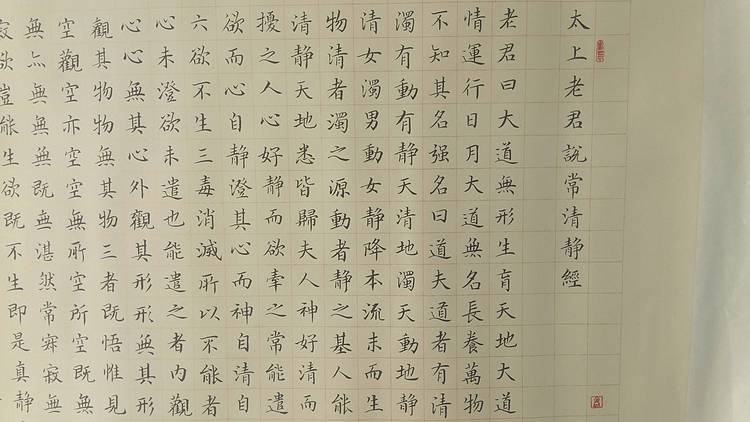 太上老君説常清靜經
老君曰大道無形生育天地大道
情運行日月大道無名長養萬物
不知其名强名曰道夫道者有清
濁有動有靜天清地濁天動地靜
清女濁男動女靜降本流末而生
物清者濁之源動者靜之基人能
清靜天地悉皆歸夫人神好清而
擾之人心好靜而欲牽之常能遣
欲而心自靜澄其心而神自清自
六欲不生三毒消滅所以不能者
心未澄欲未遣也能遣之者內觀
心心無其心外觀其形形無其形
觀其物物無其物三者既悟惟見
空觀空亦空空無所空所空既無
無亦無無無既無湛然常寂寂無
寂欲豈能生欲既不生即是真靜